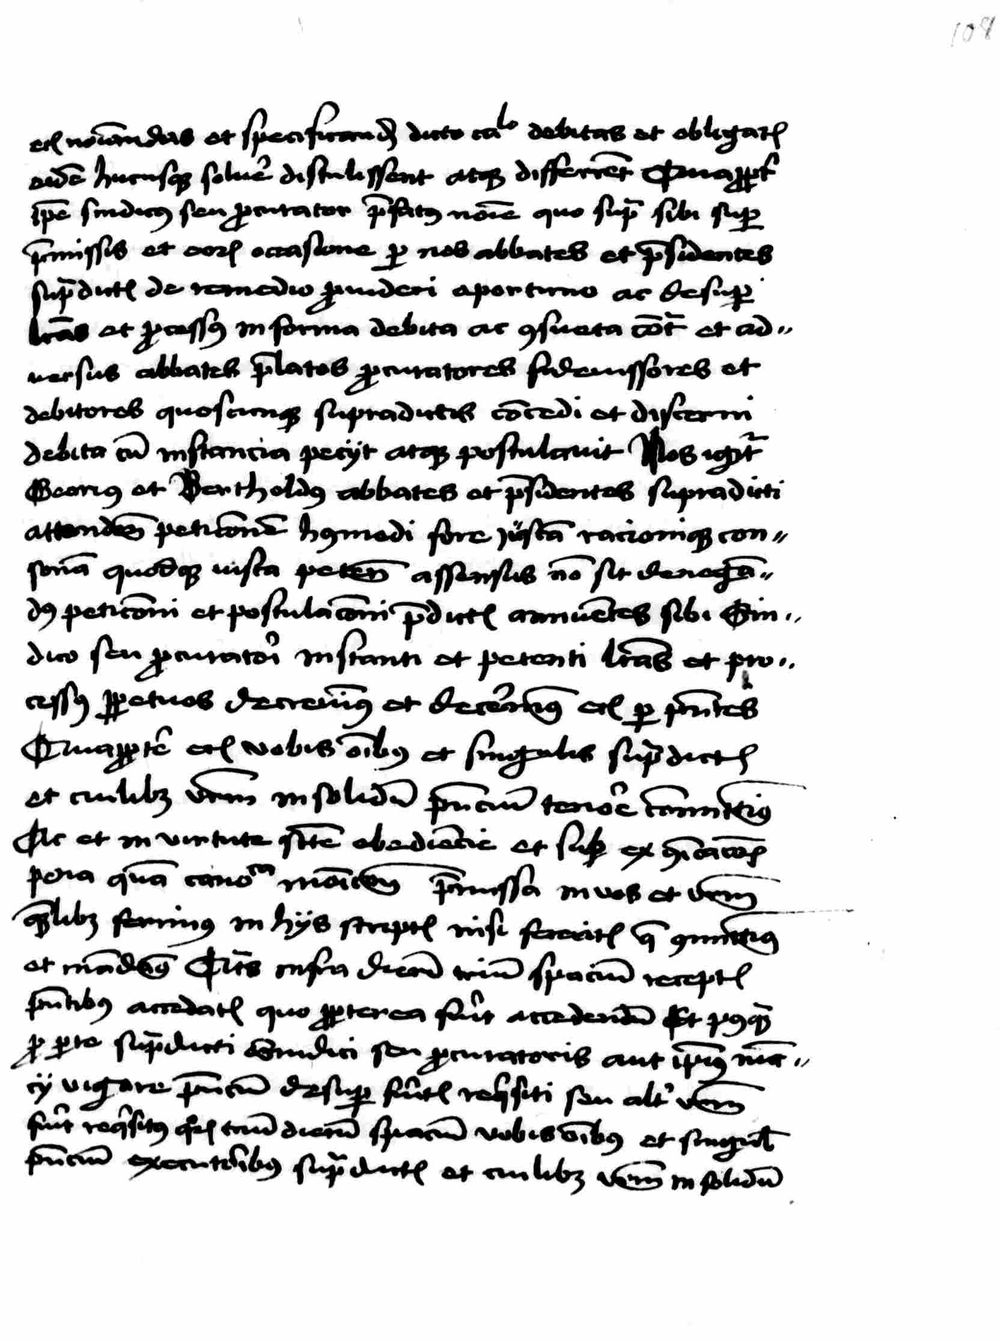 108
etc nominandas et specificand dicto calo debitas et obligatas
eidem hucusque solvere distulissent atque differrent Quapropter
ipse sindicus seu procurator prefatus nomine quo supra sibi super
premissis et eorum occasione per nos abbates et presidentes
supradictos de remedio provideri oportuno ac desuper
litteras et processus in forma debita ac consueta contra et ad-
versus abbates prelatos procuratores fideiussores et
debitores quoscumque supradictis concedi et discerni
debita cum instancia peciit atque postulavit Nos igitur
Georius et Bertholdus abbates et presidentes supradicti
attendentes peticionem huiusmodi fore iustam racionique con-
sonam quodque iusta petentibus assensus non sit denegan-
dus peticioni et postulacioni predictis annuentes sibi Sin-
dico seu procuratori instanti et petenti litteras et pro-
cessus perpetuos decrevimus et decernimus etc per presentes
Quapropter etc vobis omnibus et singulis supradictis
et cuilibet vestrum insolidum presencium tenore committimus
Ac et in virtute sancte obediencie et sub excommunicacionis
pena quam canonica monicione premissa in vos et vestrum
quemlibet ferimus in hiis scriptis nisi feceritis que committimus
et mandamus Quatenus infra dierum trium spacium receptis
presentibus accedatis quo propterea fuerit accedendum Et postquam
pro parte supradicti Sindici seu procuratoris aut ipsius nun-
cii vigore presencium desuper fueritis requisiti seu alter vestrum
fuerit requisitus etc trium dierum spacium vobis omnibus et singulis
presencium executoribus supradictis et cuilibet vestrum insolidum